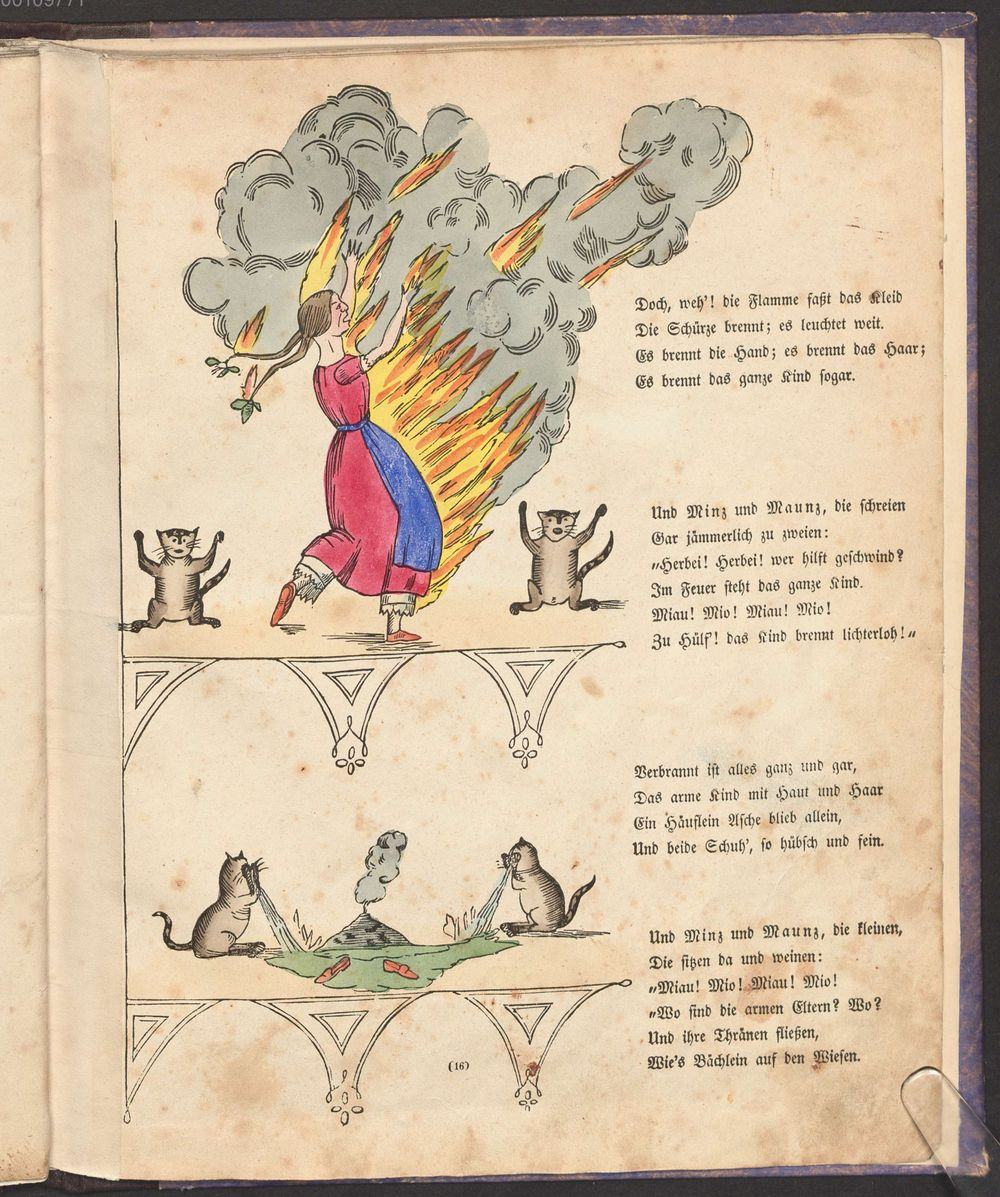 00109771
Doch, weh'! die Flamme faßt das Kleid
Die Schürze brennt; es leuchtet weit.
Es brennt die Hand; es brennt das Haar;
Es brennt das ganze Kind sogar.
Und Minz und Maunz, die schreien
Gar jämmerlich zu zweien:
„Herbei! Herbei! wer hilft geschwind?
Im Feuer steht das ganze Kind.
Miau! Mio! Miau! Mio!
Zu Hülf'! das Kind brennt lichterloh!„
Verbrannt ist alles ganz und gar,
Das arme Kind mit Haut und Haar
Ein Häuflein Asche blieb allein,
Und beide Schuh', so hübsch und fein.
Und Minz und Maunz, die kleinen,
Die sitzen da und weinen:
„Miau! Mio! Miau! Mio!
„Wo sind die armen Eltern? Wo?
Und ihre Thränen fließen,
Wie's Bächlein auf den Wiesen.
(16)